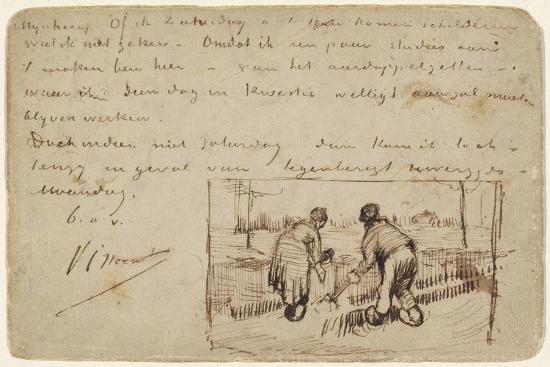 Mynheer, Of ik Zaturdag a.s. kan komen schilderen
weet ik niet zeker – Omdat ik een paar studies aan
't maken ben hier – van het aardappelzetten –
waar ik dien dag in kwestie welligt aan zal moeten
blyven werken.
Doch indien niet Saturdag dan kom ik toch
tenzy in geval van tegenberigt Uwerzyds
Maandag.
b. a. v.
Vincent